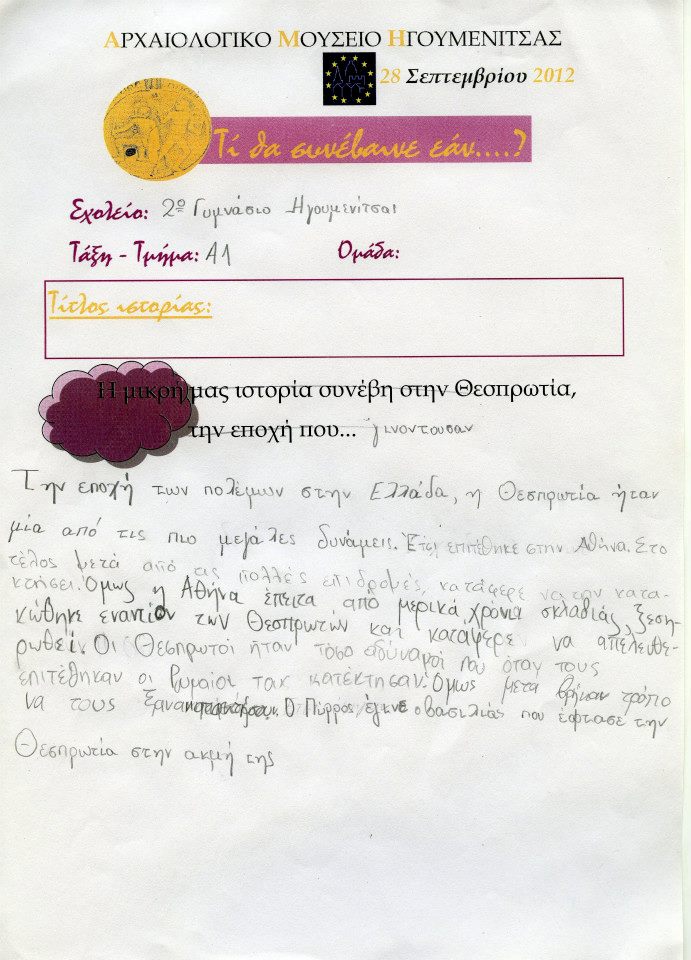 ΑΡΧΑΙΟΛΟΓΙΚΟ ΜΟΥΣΕΙΟ ΗΓΟΥΜΕΝΙΤΣΑΣ
28 Σεπτεμβρίου 2012
Τί θα συνέβαινε εάν....?
Σχολείο: 2º Γυμνάσιο Ηγουμενίτσας
Τάξη - Τμήμα: Α1 Ομάδα:
Τίτλος ιστορίας:
Η μικρή μας ιστορία συνέβη στην Θεσπρωτία,
την εποχή που... γινοντουσαν
Την εποχή των πολέμων στην Ελλάδα, η Θεσπρωτία ήταν
μία από τις πιο μεγάλες δυνάμεις. Έτσι επιτέθηκε στην Αθήνα. Στο
τέλος μετά από τις πολλές επιδρομές, κατάφερε να την κατα-
κτήσει. Όμως η Αθήνα έπειτα από μερικά χρόνια σκλαβιάς, ξεση-
κώθηκε εναντίον των Θεσπρωτών και κατάφερε να απελευθε-
ρωθεί. Οι Θεσπρωτοί ήταν τόσο αδύναμοι που όταν τους
επιτέθηκαν οι Ρωμαίοι τους κατέκτησαν. Όμως μετά βρήκαν τρόπο
να τους Ο Πύρρος έγινε ο βασιλιάς που έφτασε την
Θεσπρωτία στην ακμή της